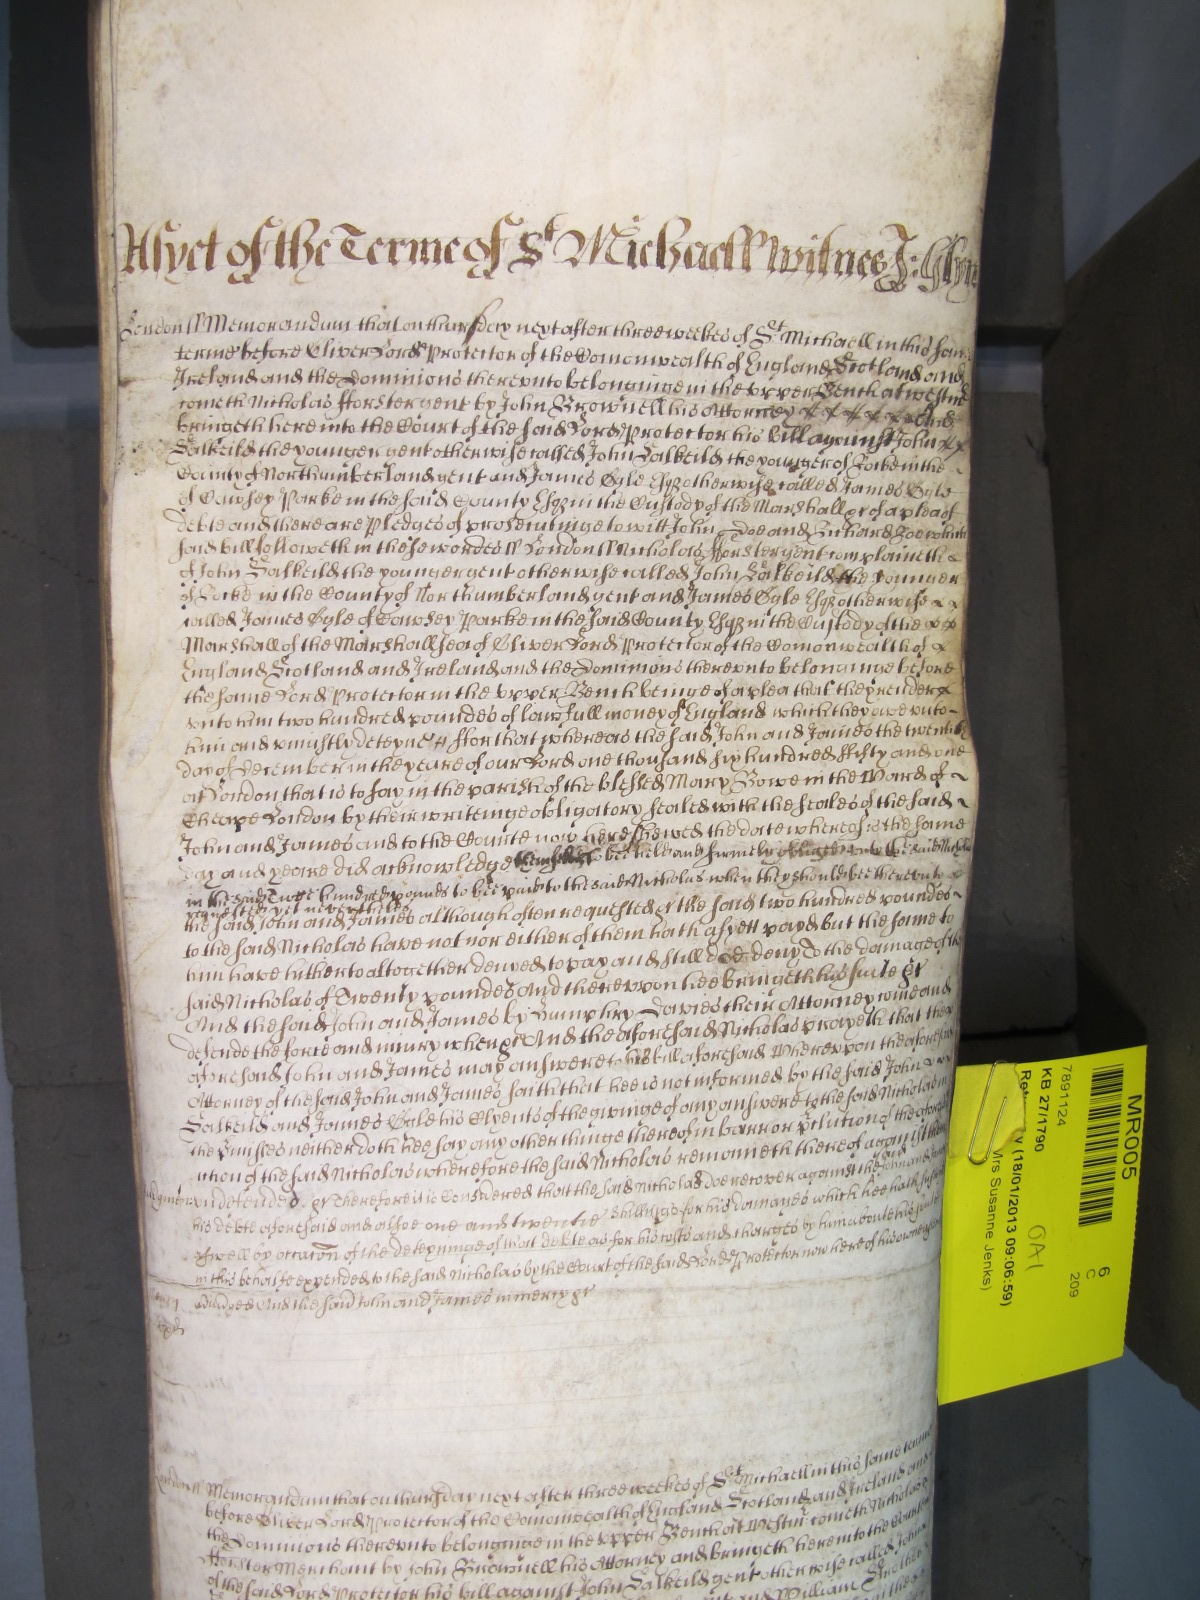 As yet of the Terme of St Michaell Witnes J: Glyn
London ss Memorandum that on thursday next after three weekes of St Michaell in this same
terme before Oliver Lord Protector of the Comonwealth of England Scotland and
Ireland and the Dominions thereunto belonginge in the upper Bench at westmr
cometh Nicholas fforster gent by John Brownell his Attorney And
bringeth here into the Court of the said Lord Protector his bill against John
Salkeild the younger gent otherwise called John Salkeild the younger of Rocke in the
County of Northumberland gent and James Ogle Esqr otherwise called James Ogle
of Cawsey Parke in the said County Esqr in the Custody of the Marshall &c of a plea of
debte and there are Pledges of prosecutinge to witt John Doe and Richard Roe which
said bill followeth in these wordes ss London ss Nicholas fforster gent complaineth
of John Salkeild the younger gent otherwise called John Salkeild the younger
of Rocke in the County of Northumberland gent and James Ogle Esqr otherwise
called James Ogle of Cawsey Parke in the said County Esqr in the Custody of the
Marshall of the Marshallsea of Oliver Lord Protector of the Comonwealth of
England Scotland and Ireland and the Dominions thereunto belonginge before
the same Lord Protector in the upper Bench beinge of a plea that they render
unto him two hundred poundes of lawfull money of England which they owe unto
him and uniustly deteyne ffor that whereas the said John and James the twentith
day of December in the yeare of our Lord one thousand six hundred fifty and one
at London that is to say in the parish of the blessed Mary Bowe in the Ward of
Cheape London by their writeinge obligatory sealed with the seales of the said
John and James and to the Courte now here shewed the date whereof is the same
day and yeare did acknowledge themselves to bee held and firmely obliged unto the said Nicholas
in the said Twoe hundred pounds to bee paid to the said Nicholas when they should bee thereunto
requested yet neverthelesse
the said John and James although often requested &c the said two hundred poundes
to the said Nicholas have not nor either of them hath as yett payd but the same to
him have hitherto altogether denyed to pay and still doe deny To the damage of the
said Nicholas of Twenty poundes And thereupon hee bringeth his suite &c
And the said John and James by Humphry Davies their Attorney come and
defende the force and iniury when &c And the aforesaid Nicholas prayeth that the
aforesaid John and James may answere to his bill aforesaid Whereupon the aforesaid
Attorney of the said John and James saith that hee is not informed by the said John
Salkeild and James Ogle his Clyents of the givinge of any answere to the said Nicholas in
the premisses neither doth hee say any other thinge thereof in barr or preclution of the aforesaid
action of the said Nicholas wherefore the said Nicholas remaineth thereof against them
Judgment undefended &c Therefore it is Considered that the said Nicholas doe recover against the said John and James
his debte aforesaid and alsoe one and twentie shillings for his damages which hee hath susteyned
aswell by occation of the deteyninge of that debte as for his costs and charges by him aboute his suite
in this behalfe expended to the said Nicholas by the Court of the said Lord Protector now here of his owne assent
adiudged And the said John and James in mercy &c
London ss Memorandum that on thursday next after three weekes of St Michaell in this same terme
before Oliver Lord Protector of the Comonwealth of England Scotland and Ireland and
the Dominions thereunto belonginge in the upper Bench at Westmr cometh Nicholas
fforster Merchant by John Brownell his Attorney and bringeth here into the Court
of the said Lord Protector his bill against John Salkeild gent otherwise called John
gent and William
MR005
6
C
209
7891124
KB 27/1790
(18/01/2013 09:06:59)
Mrs Susanne Jenks)